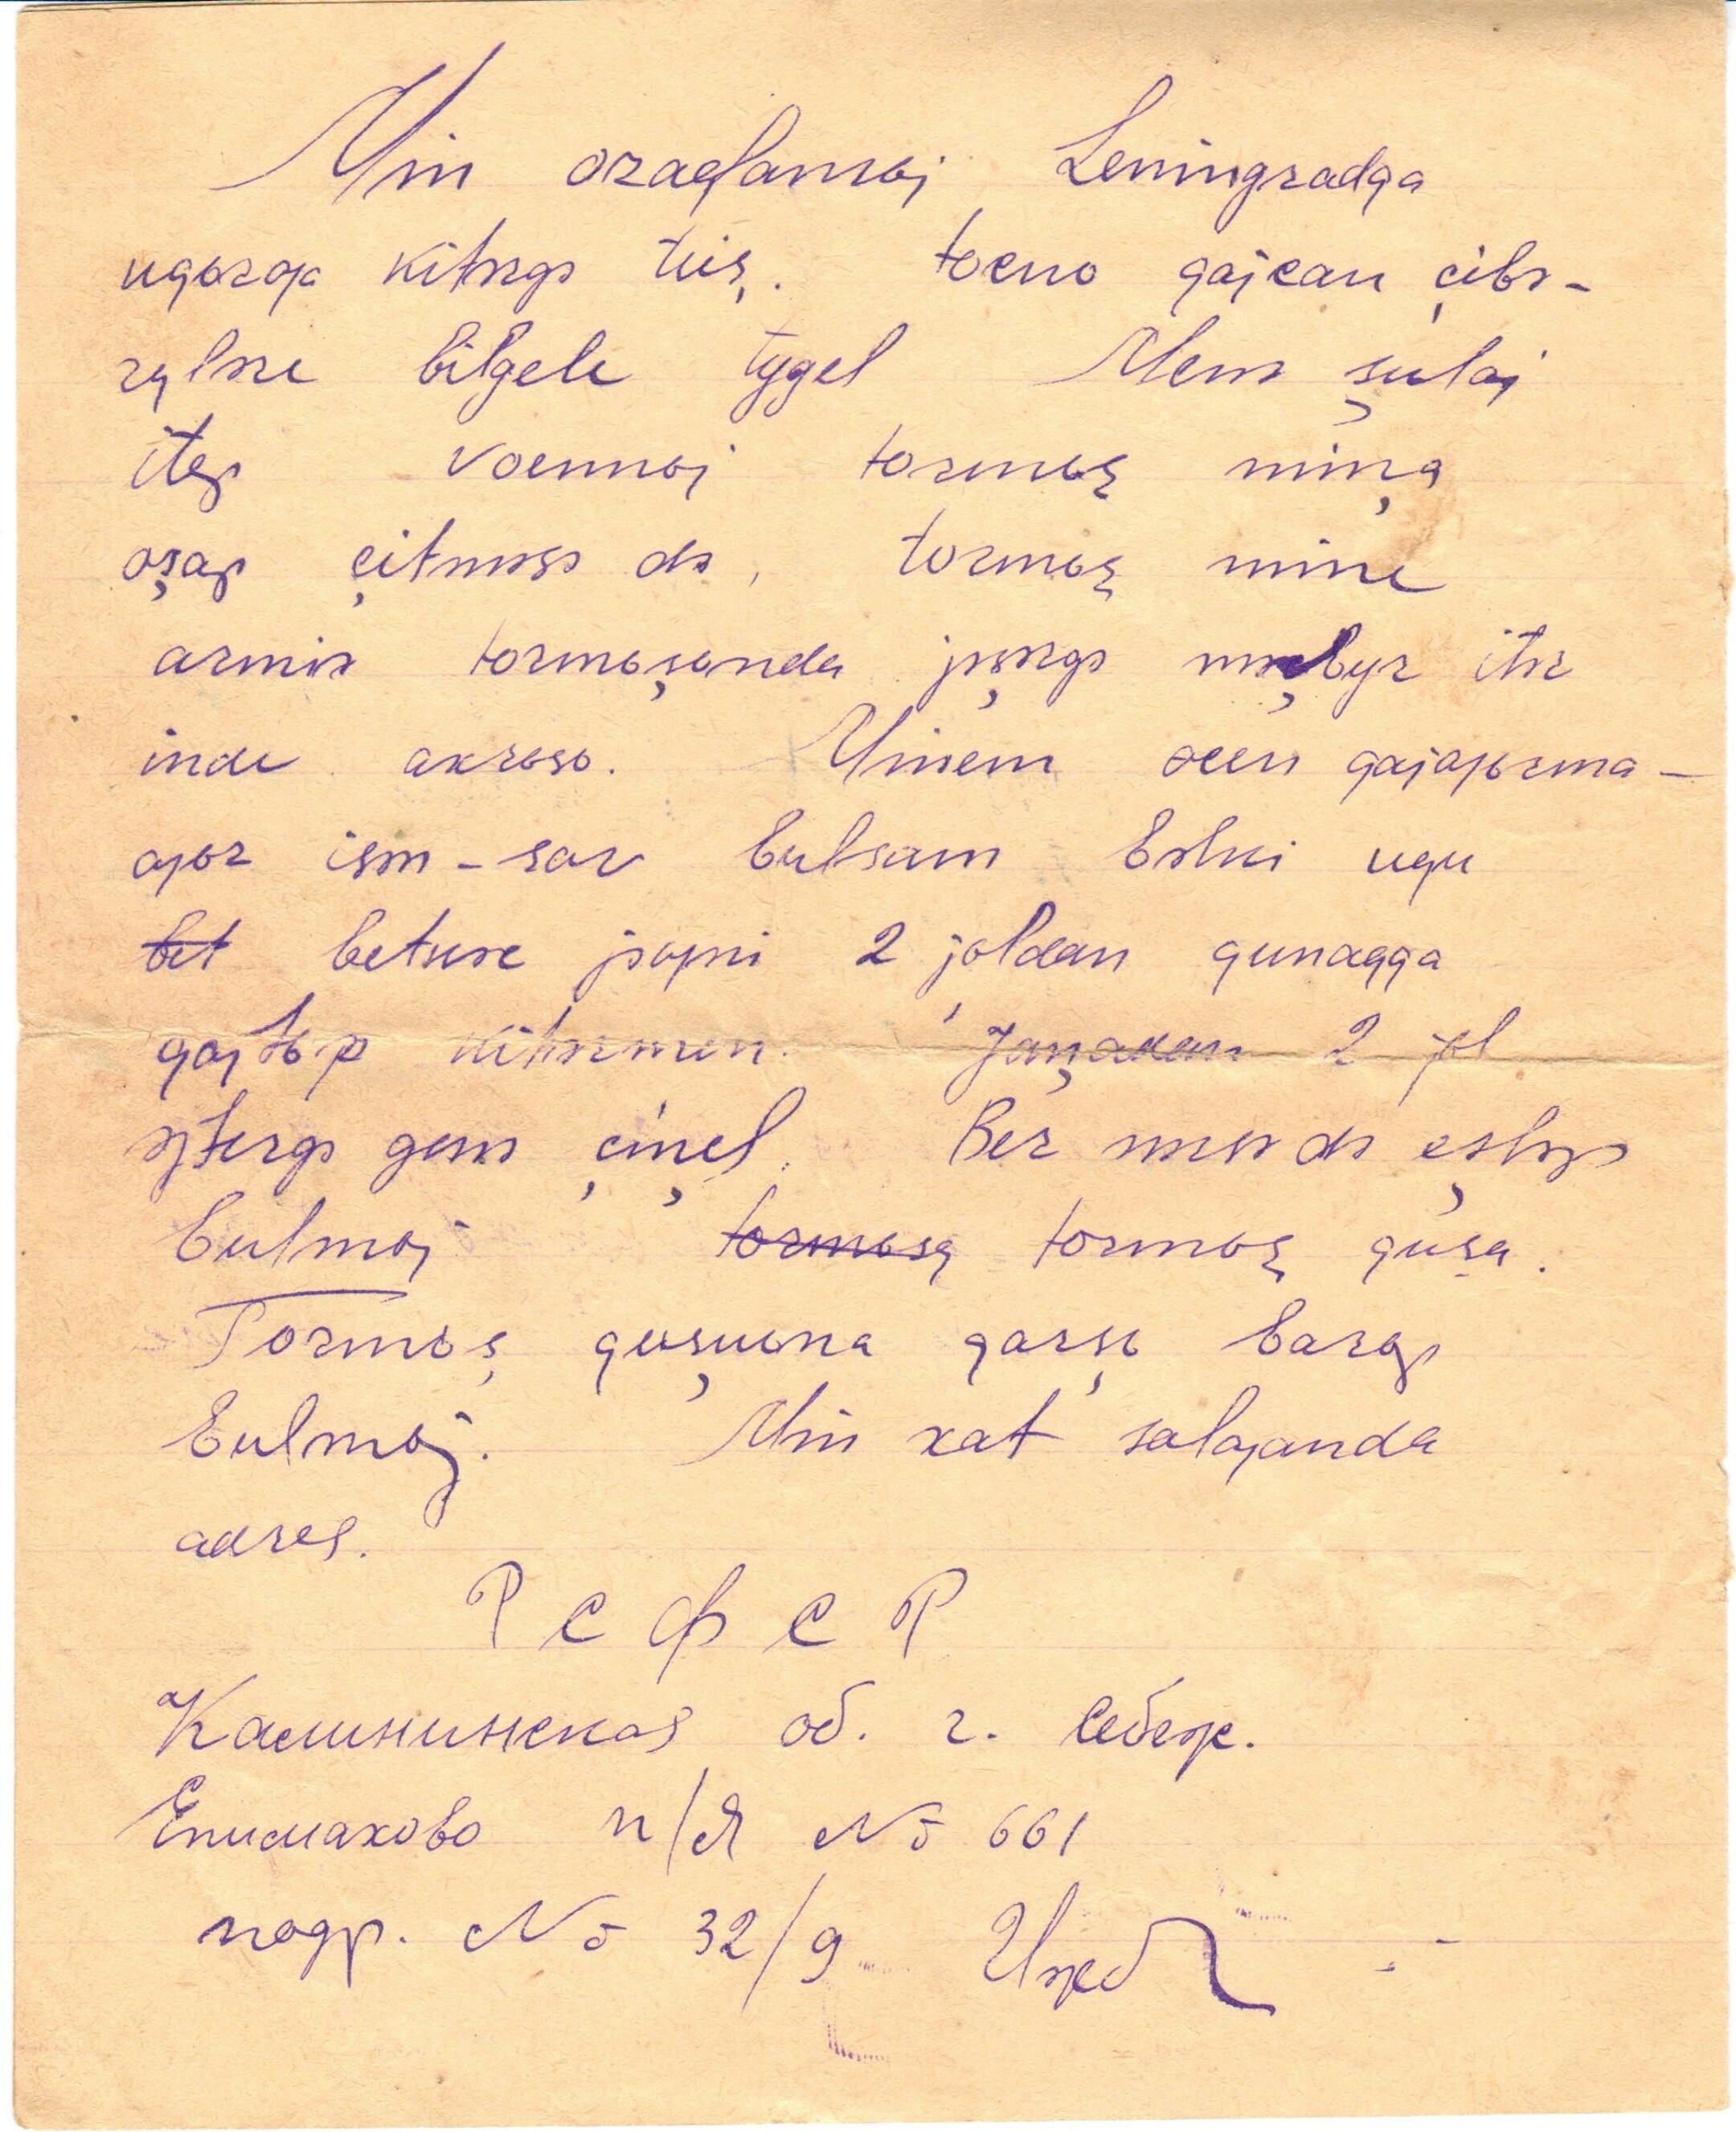 Min ozaqlamьj Leningradqa
uqьrƣa kitərgə tieş. tocno qajcan çibə-
rylәre bilgele tygel Menə şulaj
itep voennьj tormьş miŋa
oşap çitməsə də, tormьş mine
armiə tormьşьnda jəşərgə məçbyr itər
inde axrьsь. Minem ɵcen qajƣьrma-
ƣьz isən-sav bulsam Bəlki uqu
bet betkəc jəƣni 2 joldan qunaqqa
qajtьp kitərmen. Jaŋadan 2 jol
ytərgə genə çiŋel. Ber nərsə də eşləp
bulmьj tormьşq tormьş quşa.
Tormьş quşuьna qarşь barьp
bulmьj. Min xat salƣanda
adres.
Р С Ф С Р
Калининская об. г. Себеж.
Епимахово п/я № 661
подр. № 32/9